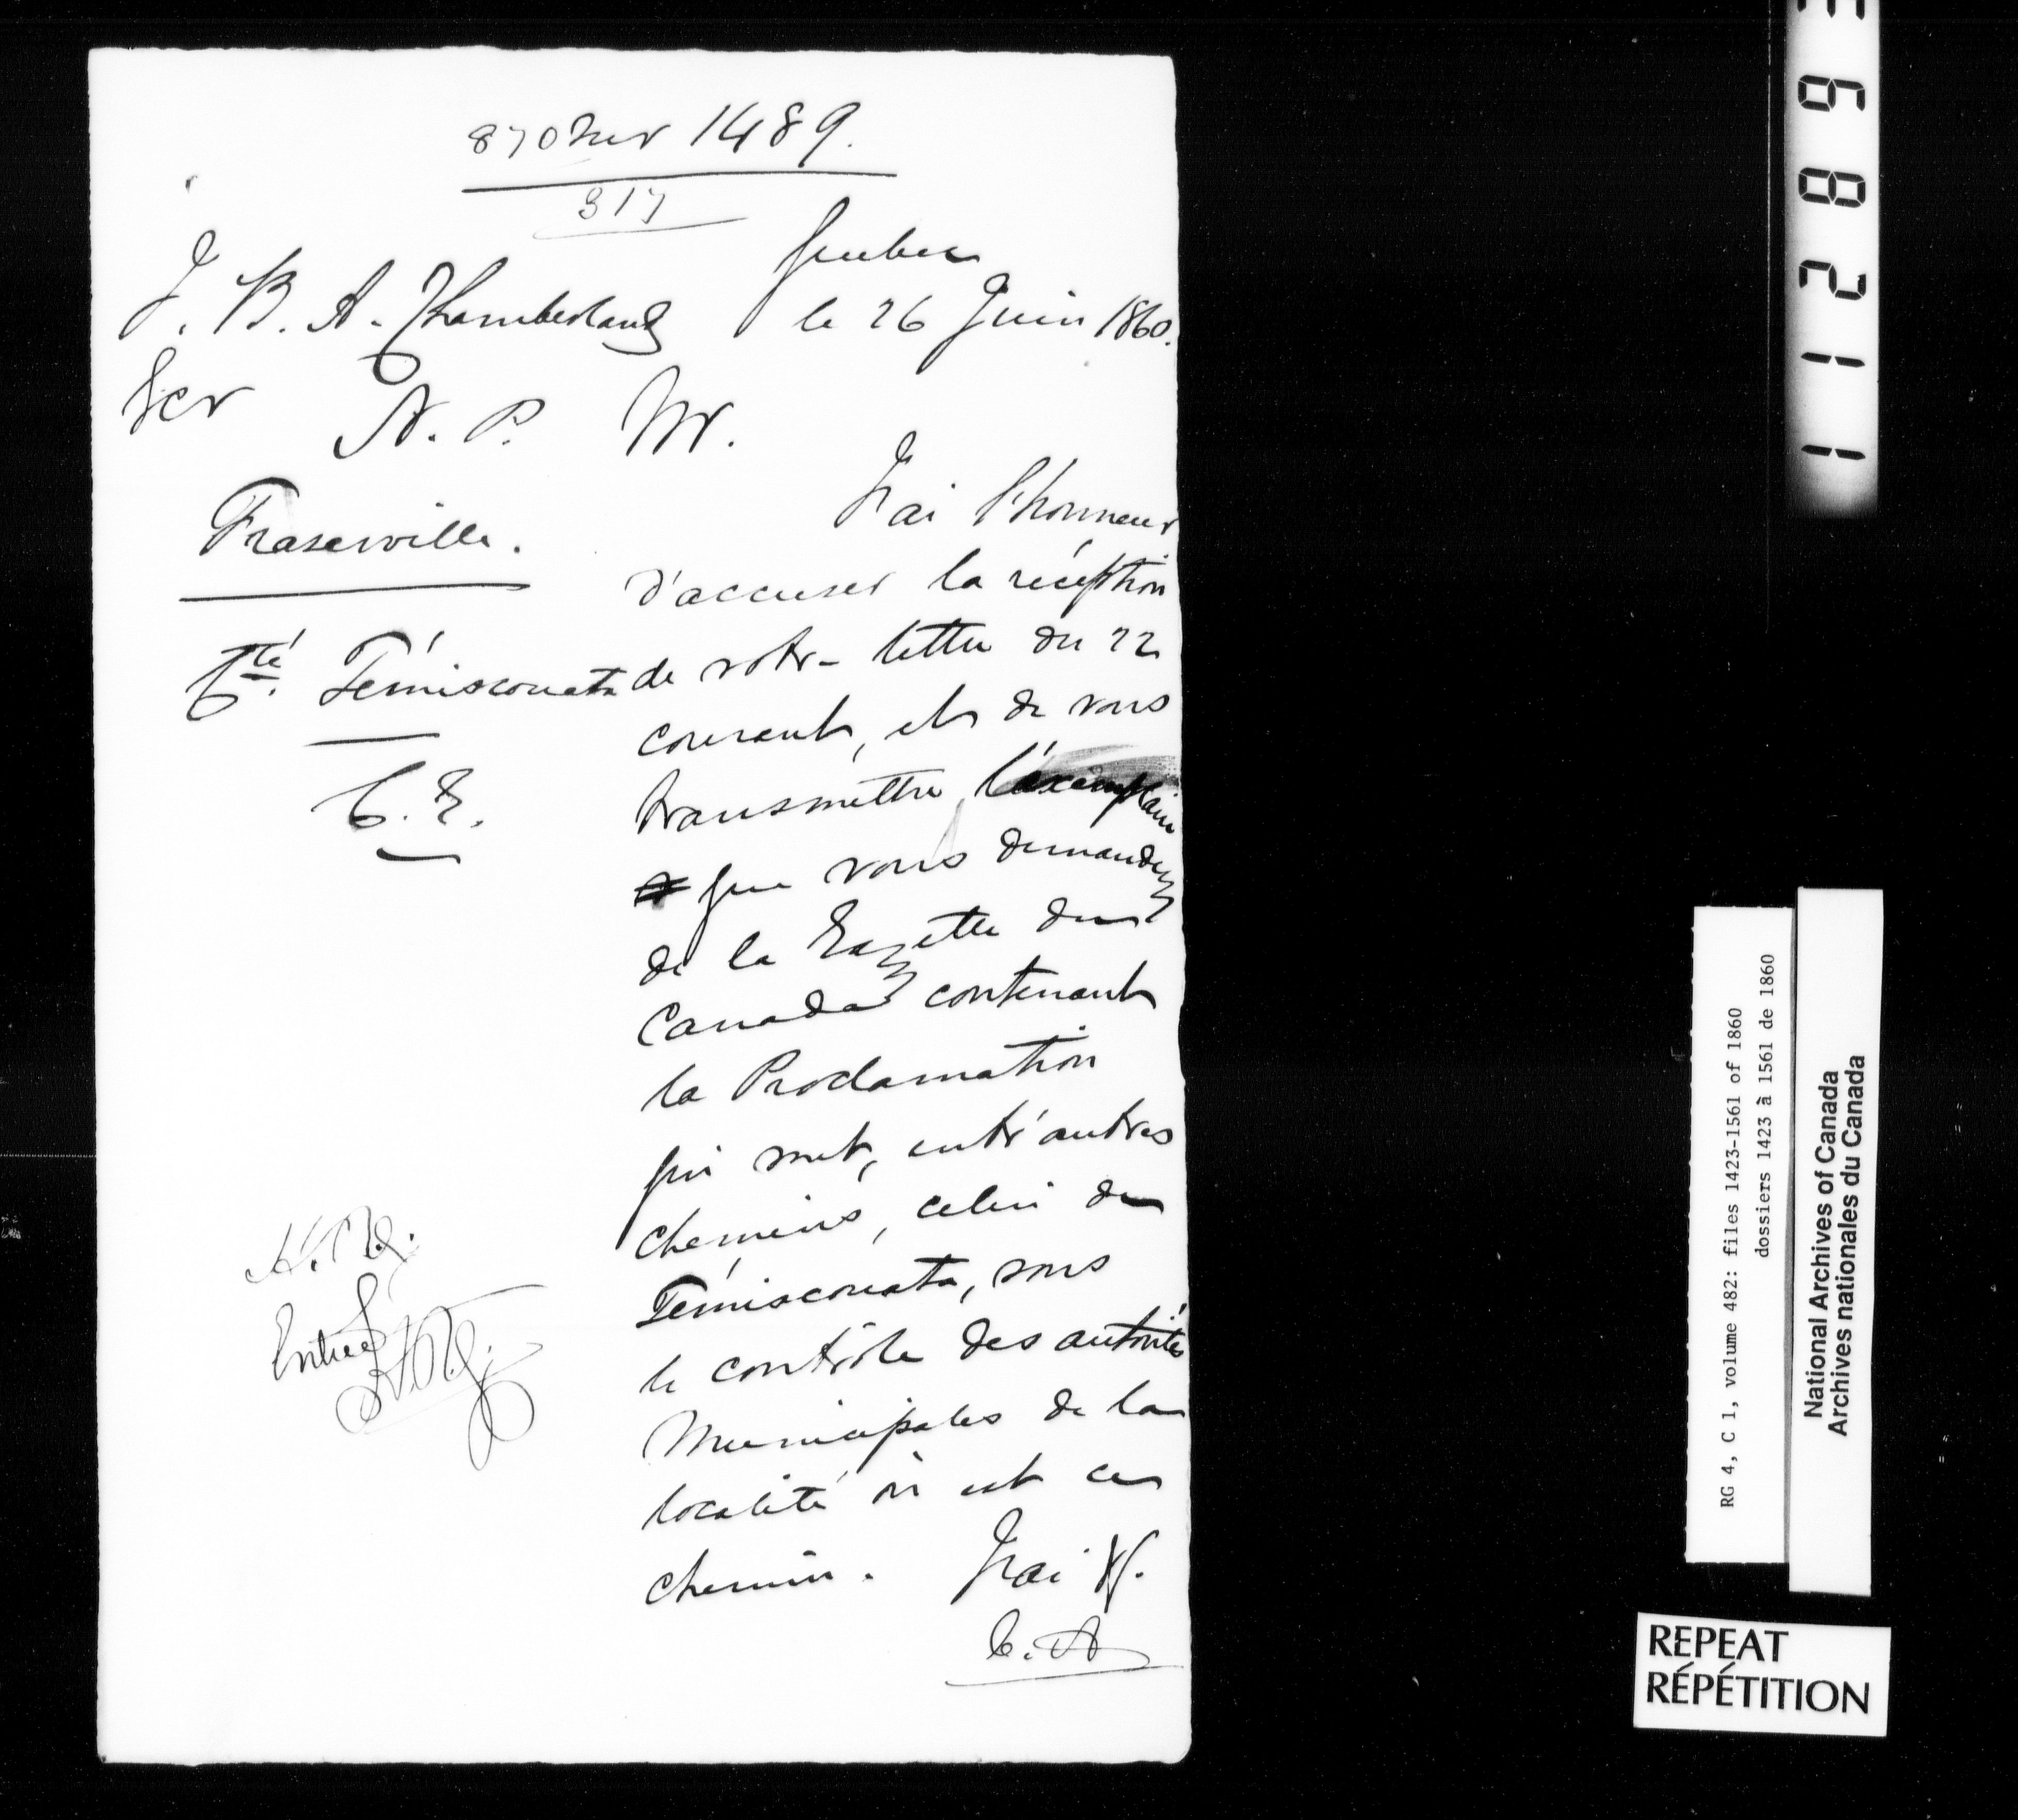 870 1489.
317
Quebec
J. B. A. Chamberland
le 26 Juin 1860.
Ecr N. P. Mr.
Fraserville.
Cté. Témiscouata
C. E.
J'ai l'honneur
d'accuser la réception
de votre lettre du 22
courant, et de vous
transmettre, l'exemplaire
que vous demandez
de la Gazette du
Canada contenant
la Proclamation
qui met, entr'autres
chemins, celui de
Témiscouata, sous
le contrôle des autorités
Municipales de la
localité où est ce
chemin. J'ai &c.
C. A
Entrée
112893
RG 4, C 1, volume 482: files 1423-1561 of 1860
dossiers 1423 à 1561 de 1860
National Archives of Canada
Archives nationales du Canada
REPEAT
RÉPÉTITION